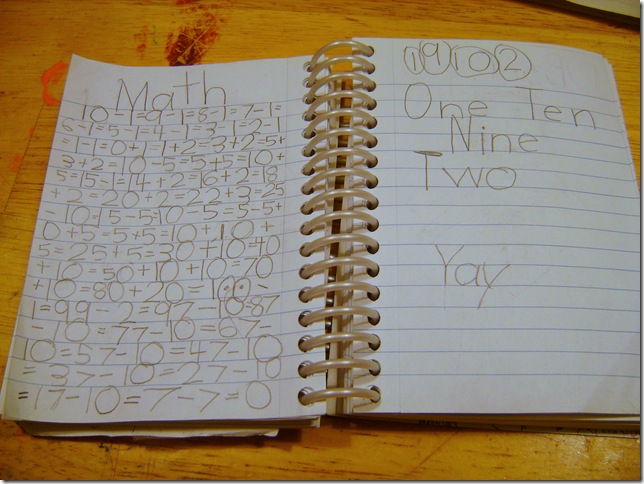 Math
10-1=9-1=8-1=7-1=
6-1=5-1=4-1=3-1=2-1
=1-1=0+1=1+2=3+2=5+
3+2=10-5=5+5=10+
5=15-1=14+2=16+2=18
+2=20+2=22+3=25
-10=15-5=10-5=5-5=
0+5=5+5=10+10+
5=25+5=30+10=40
+10=50+10+10=70
+10=80+20=100-
1=99-2=97-10=87
-10=77-10=67-
10=57-10=47-10
=37-10=27-10
=17-10=7-7=0
1 9 10 2
One Ten
Nine
Two
Yay